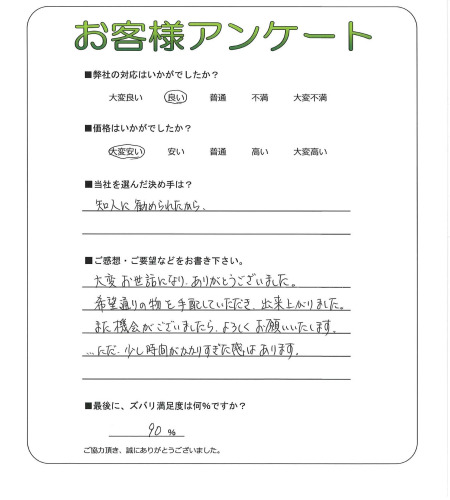 お客様アンケート
■弊社の対応はいかがでしたか？
大変良い 良い 普通 不満 大変不満
■価格はいかがでしたか？
大変安い 安い 普通 高い 大変高い
■当社を選んだ決め手は？
知人に勧められたから、
■ご感想・ご要望などをお書き下さい。
大変お世話になり、ありがとうございました。
希望通りの物を手配していただき、出来上がりました。
また機会がございましたら、よろしくお願いいたします。
…ただ、少し時間がかかりすぎた感はあります。
■最後に、ズバリ満足度は何%ですか？
90 %
ご協力頂き、誠にありがとうございました。